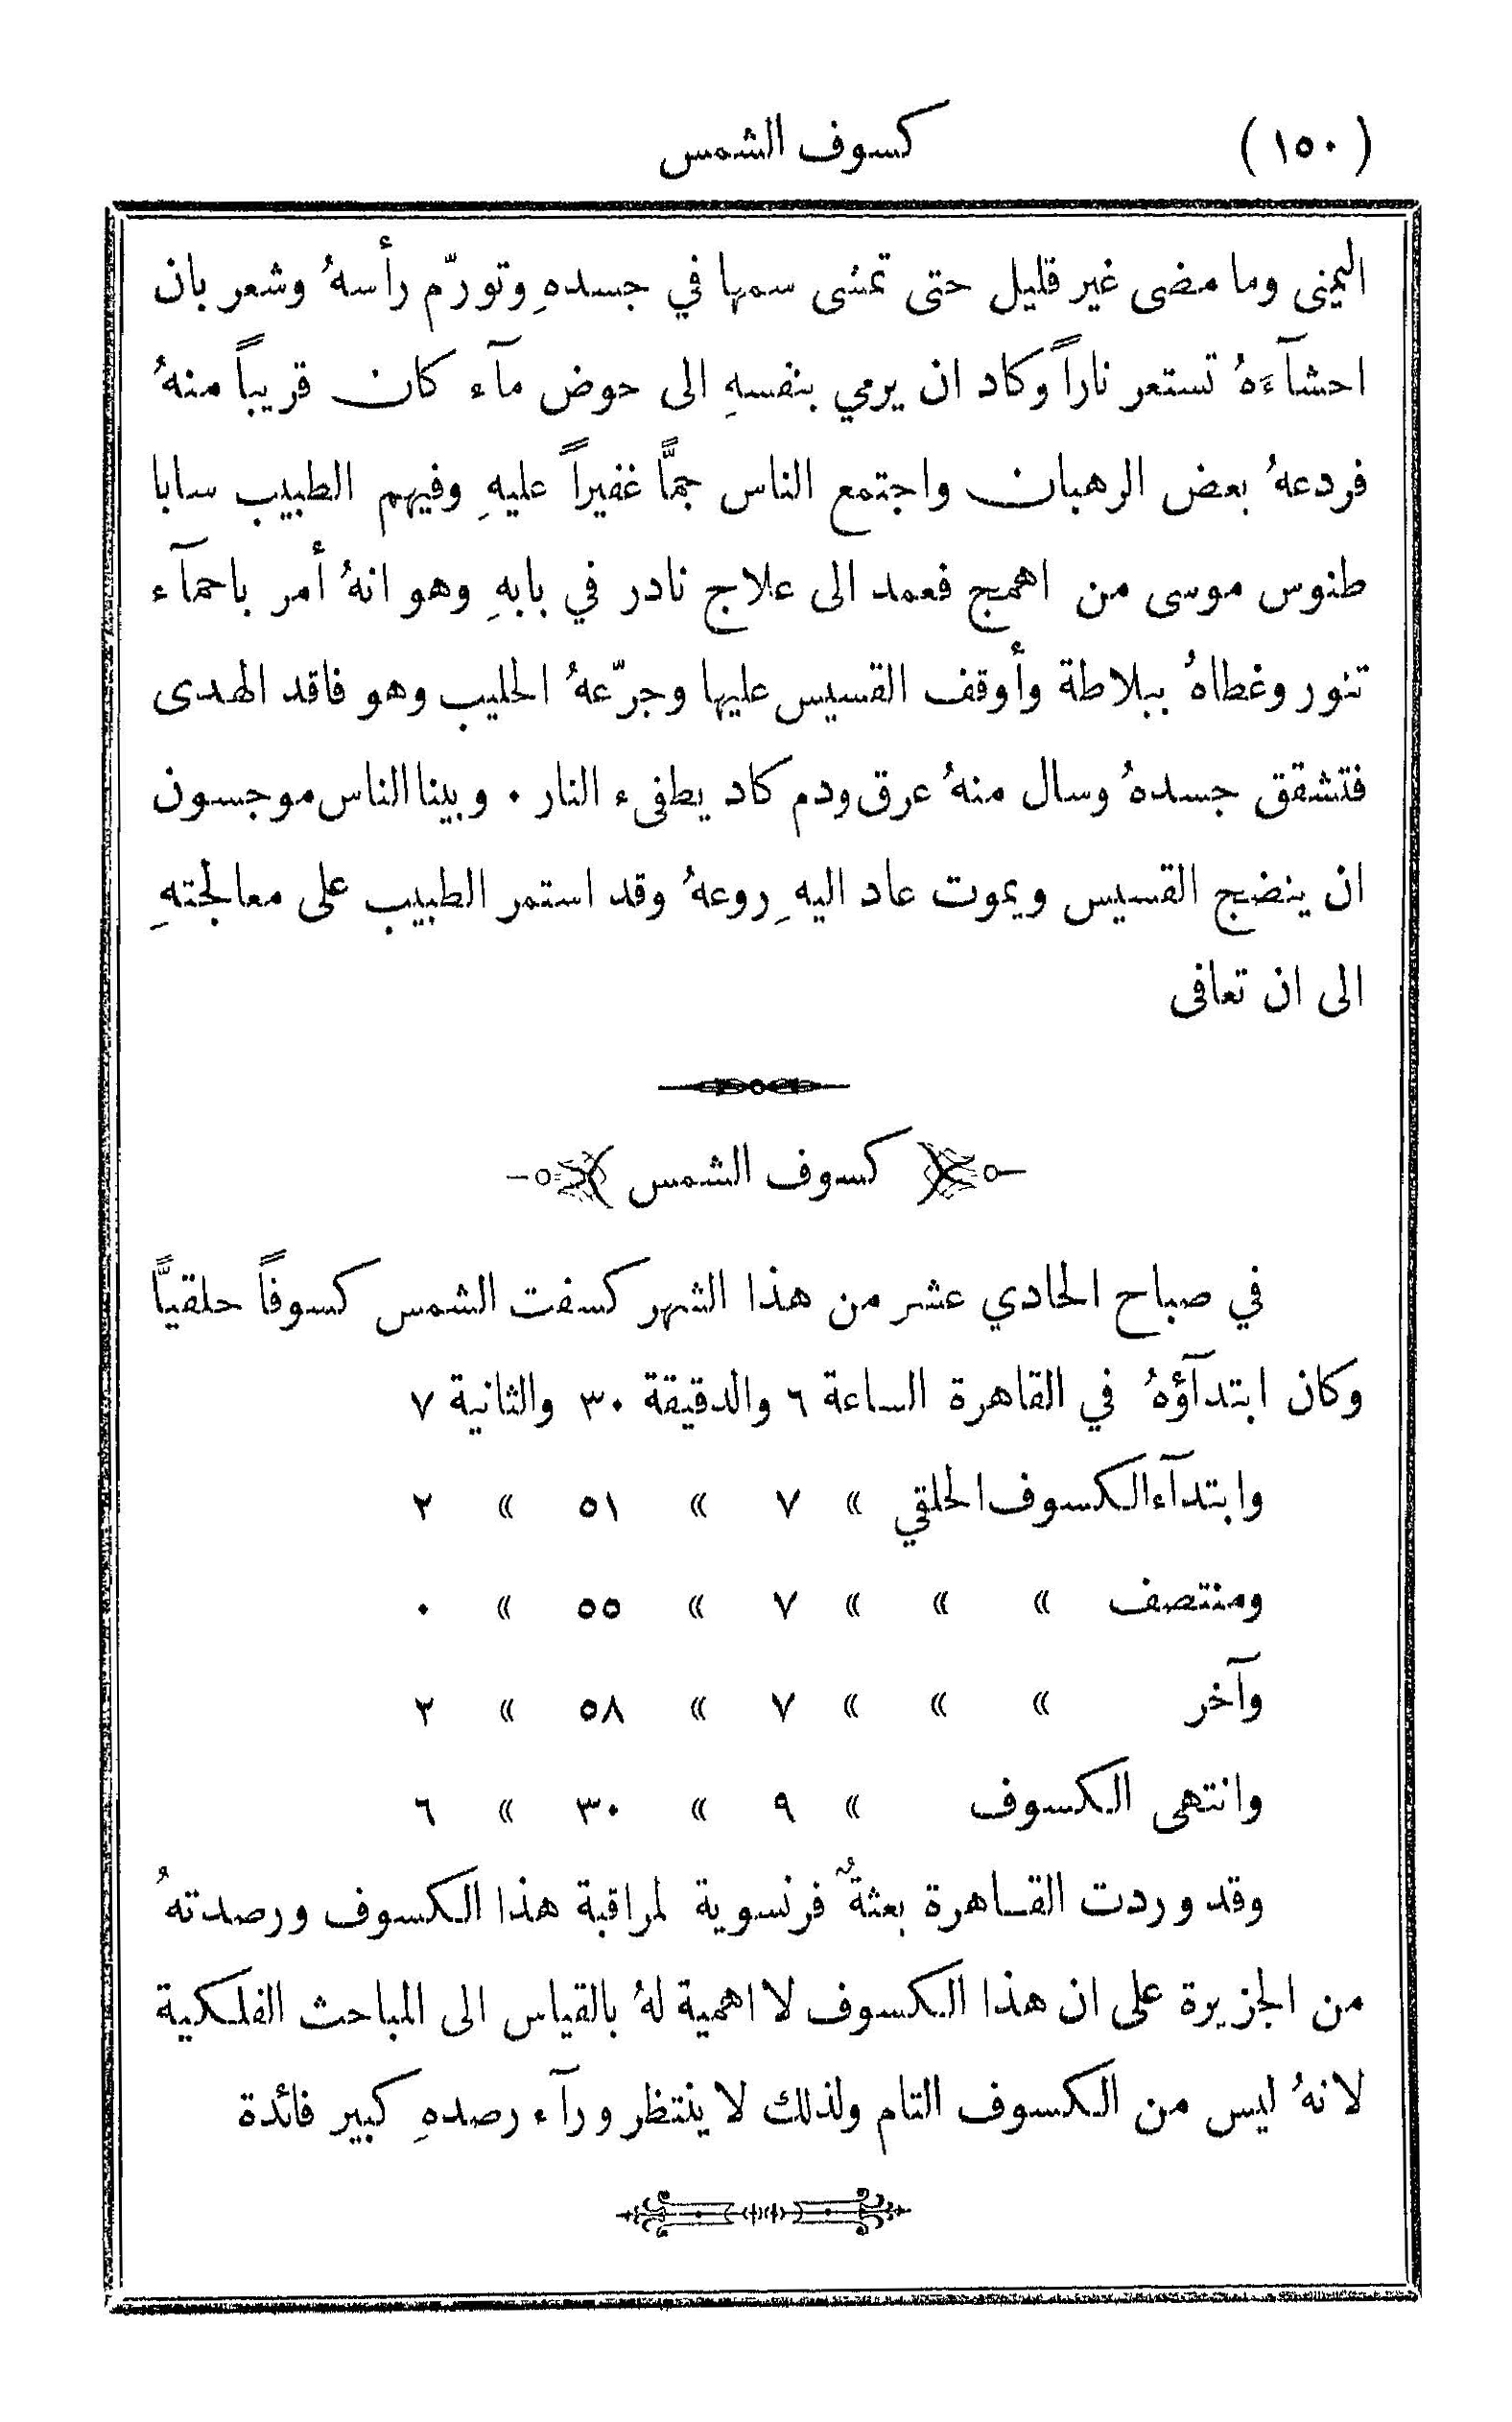 (١٥٠) كسوف الشمس
اليمنى وما مضى غير قليل حتى تمشى سمها في جسدهِ وتورّم رأسهُ وشعر بان
احشآءَهُ تستعر ناراً وكاد ان يرمي بنفسهِ الى حوض مآء كان قريباً منهُ
فردعهُ بعض الرهبان واجتمع الناس جمًّا غفيراً عليهِ وفيهم الطبيب سابا
طنوس موسى من اهمج فعمد الى علاج نادر في بابهِ وهو انهُ أمر باحمآء
تنور وغطاهُ ببلاطة وأوقف القسيس عليها وجرّعهُ الحليب وهو فاقد الهدى
فتشقق جسدهُ وسال منهُ عرق ودم كاد يطفىء النار ٠ وبينا الناس موجسون
ان ينضج القسيس ويموت عاد اليهِ روعهُ وقد استمر الطبيب على معالجتهِ
الى ان تعافى
كسوف الشمس
في صباح الحادي عشر من هذا الشهر كسفت الشمس كسوفاً حلقيًّا
وكان ابتدآؤهُ في القاهرة الساعة ٦ والدقيقة ٣٠ والثانية ٧
وابتدآء الكسوف الحلقي » ٧ » ٥١ » ٢
ومنتصف » » » ٧ » ٥٥ » ٠
وآخر » » » ٧ » ٥٨ » ٢
وانتهى الكسوف » ٩ » ٣٠ » ٦
وقد وردت القاهرة بعثةٌ فرنسوية لمراقبة هذا الكسوف ورصدتهُ
من الجزيرة على ان هذا الكسوف لا اهمية لهُ بالقياس الى المباحث الفلكية
لانهُ ليس من الكسوف التام ولذلك لا ينتظر ورآء رصدهِ كبير فائدة